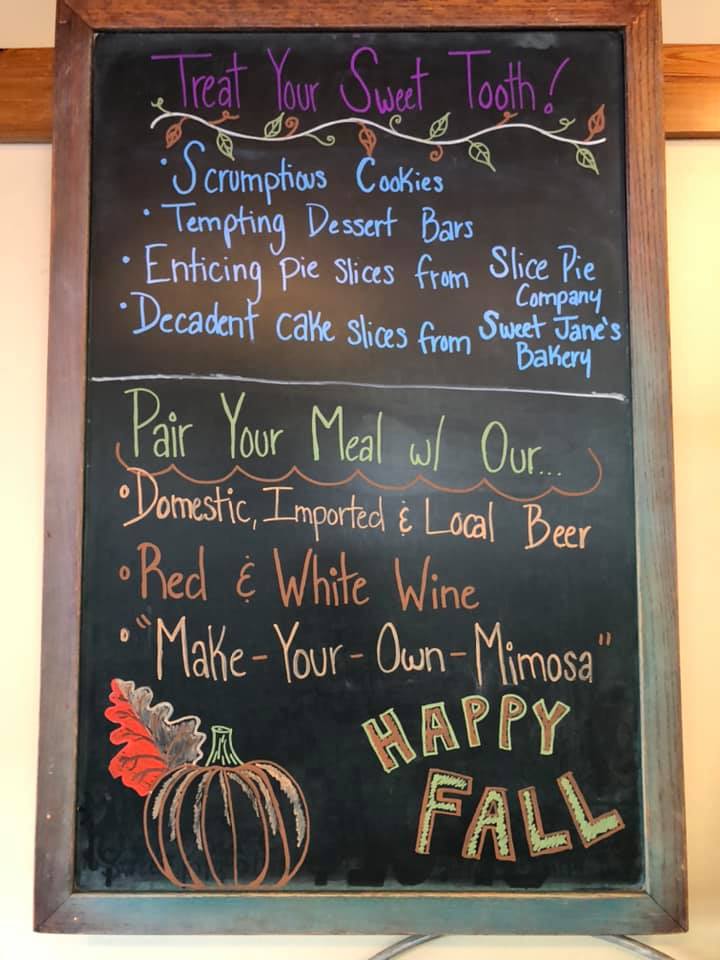 Treat Your Sweet Tooth!
• Scrumptious Cookies
• Tempting Dessert Bars
• Enticing pie slices from Slice Pie
Company
• Decadent cake slices from Sweet Jane's
Bakery
Pair Your Meal w/ Our...
• Domestic, Imported & Local Beer
• Red & White Wine
• "Make-Your-Own-Mimosa"
HAPPY
FALL